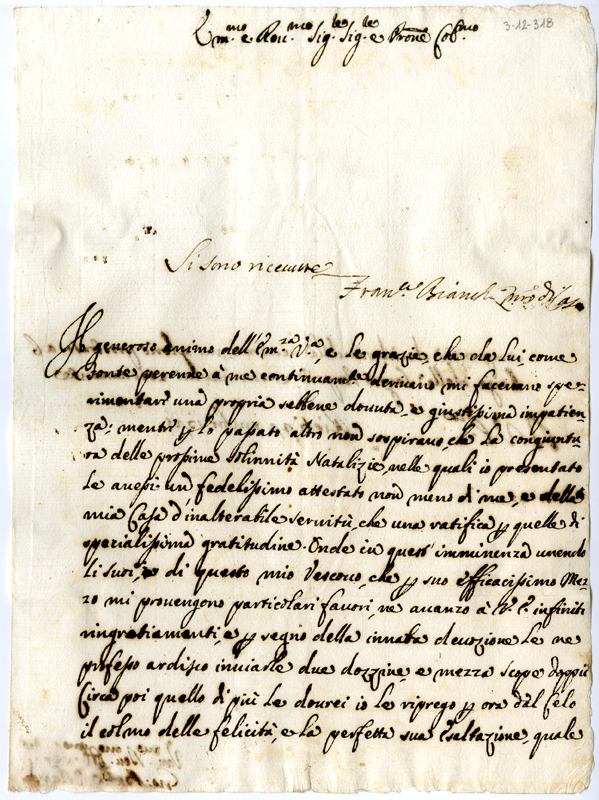 3-12-318
Em.mo e Reu.mo Sig.le Sig.le e Prone Col.mo
Si sono riceuute
Fran.co Bianchi
Il generoso animo dell'Em.za V.a, e le grazie, che da Lui, come
Fonte perenne à me continuam.te deriuano mi faceuano spe-
rimentare una propria sebbene douuta, e giustissima impatien-
za; mentre p lo passato altro non sospirauo, che la congiuntu-
ra delle prossime solennità Natalizie, nelle quali io presentato
Le auessi un fedelissimo attestato non meno di me, e della
mia Casa d'inalterabile seruitù, che una ratifica p quelle di
spezialissima gratitudine. Onde in quest' imminenza unendo
li suoi, e di questo mio Vescouo, che p suo efficacissimo Mez-
zo mi prouengono particolari fauori, ne auanzo à V. E. infiniti
ringratiamenti, e p segno della innata deuozione Le ne
professo ardisco inuiarle due dozzine, e mezza scope doppie
Circa poi quello di più Le dourei io le riprego p ora dal Cielo
il colmo delle felicità, e la perfetta sua Esaltazione, quale